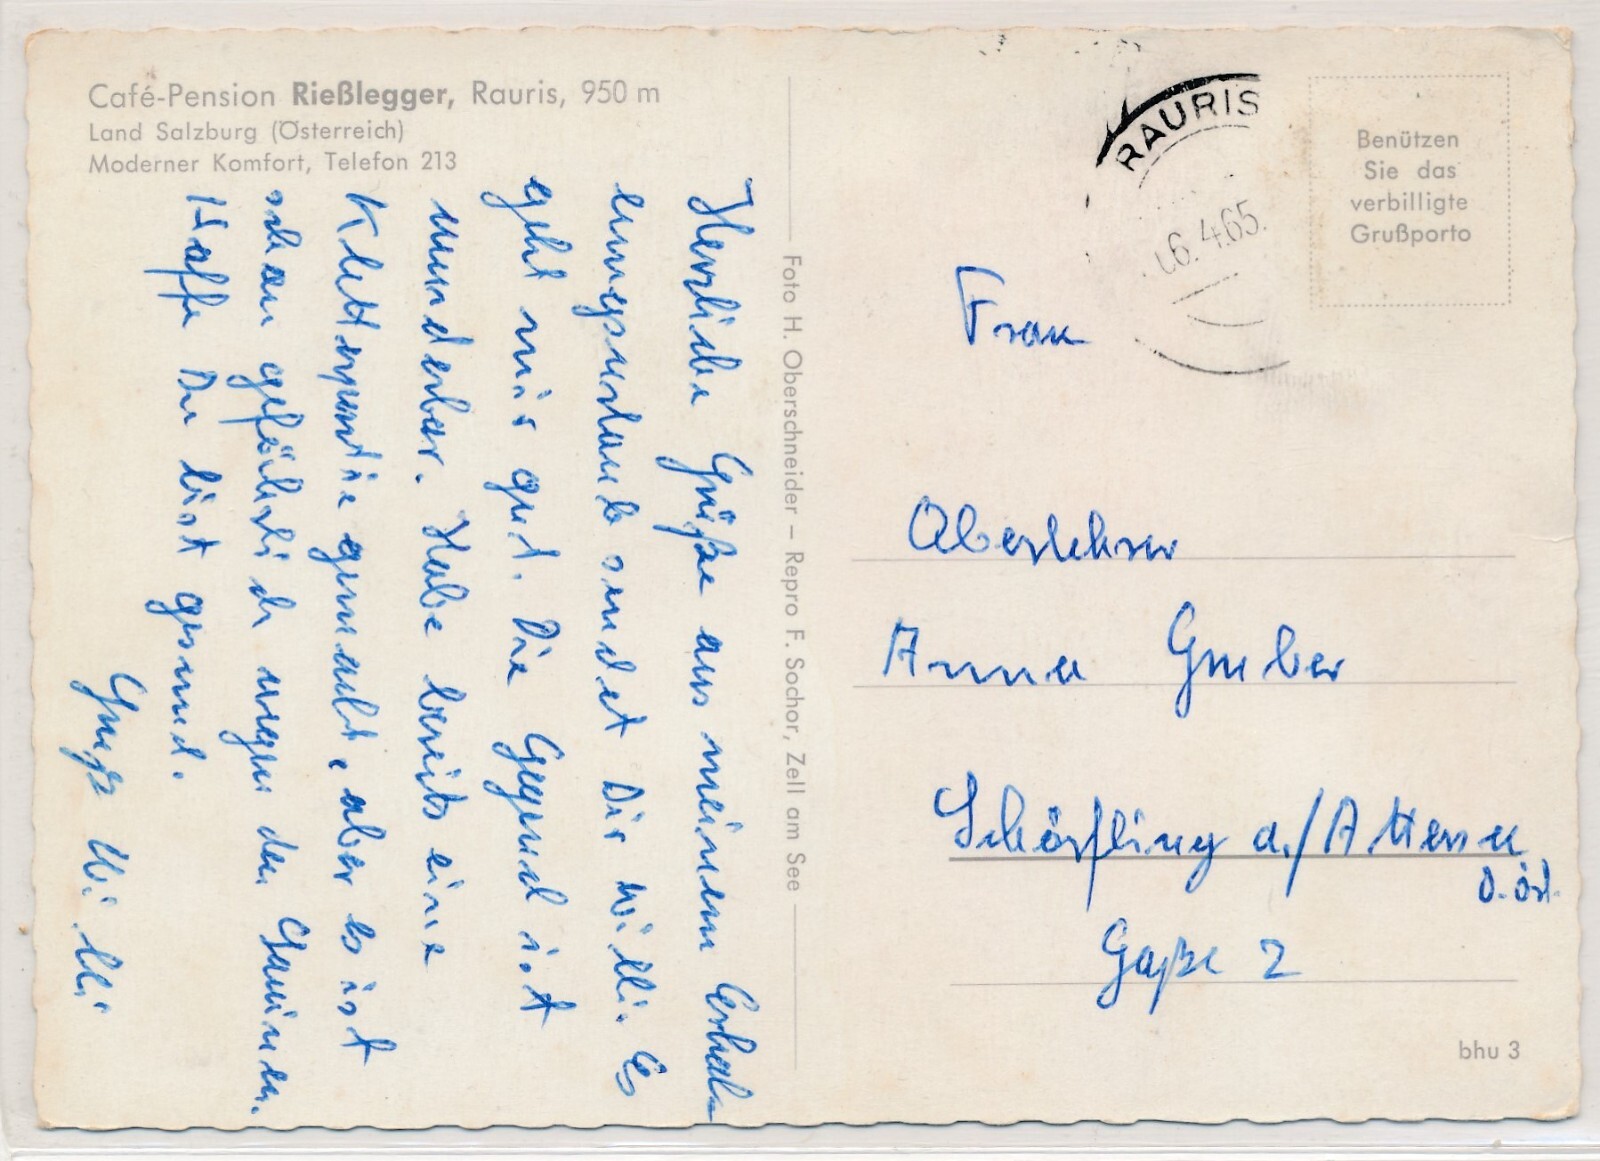 Café-Pension Rießlegger, Rauris, 950 m
Land Salzburg (Österreich)
Moderner Komfort, Telefon 213
Herzliche Grüße aus meinem Erhol-
ungsurlaub sendet Dir Willi. Es
geht mir gut. Die Gegend ist
wunderbar. Habe bereits eine
Kletterpartie gemacht, aber es ist
schon gefährlich wegen den Lawinen.
Hoffe Du bist gesund.
Gruß Willi
Foto H. Oberschneider – Repro F. Sochor, Zell am See
RAURIS
6.4.65.
Benützen
Sie das
verbilligte
Grußporto
Frau
Oberlehrer
Anna Gruber
Schörfling a./Attersee
O.Öst.
Gaße 2
bhu 3